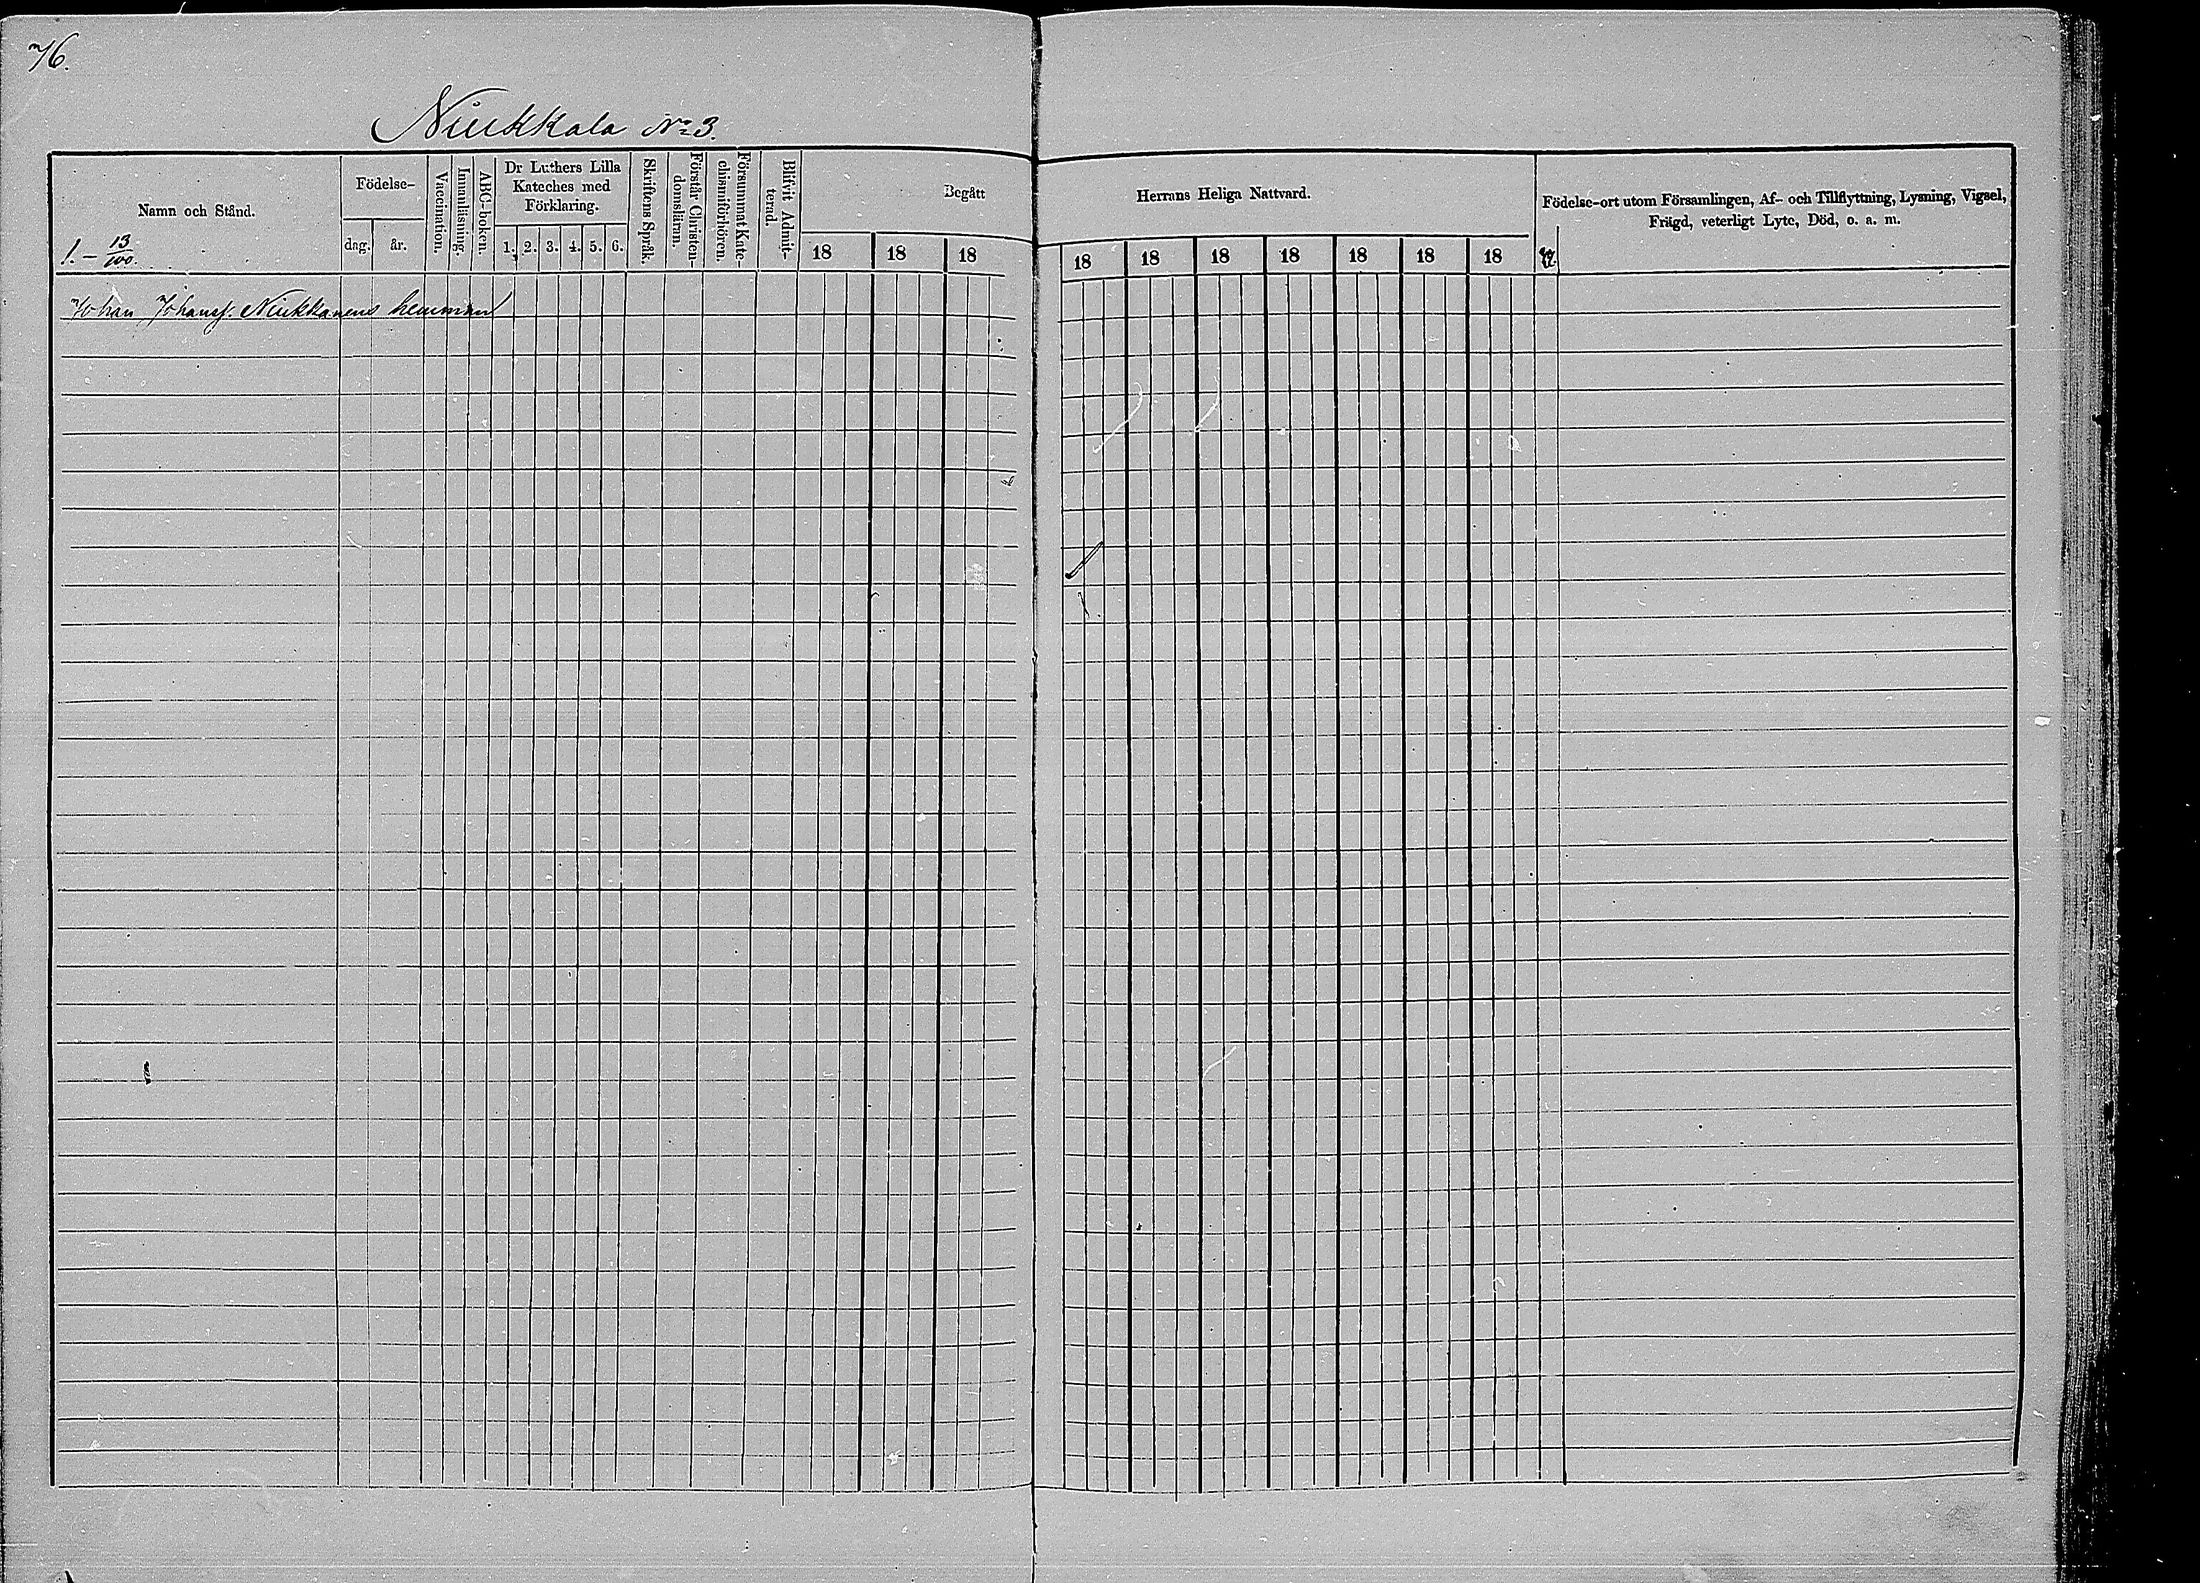 76.
Niukkala No 3.
Namn och Stånd.
1. – 13/100.
Födelse-
dag. år.
Vaccination.
Innanläsning.
ABC-boken.
Dr Luthers Lilla
Kateches med
Förklaring.
1. 2. 3. 4. 5. 6.
Skriftens Språk.
Förstår Christen-
domsläran.
Försummat Kate-
chismiförhören.
Blifvit Admit-
terad.
Begått Herrans Heliga Nattvard.
18 18 18 18 18 18 18 18 18 18
Födelse-ort utom Församlingen, Af- och Tillflyttning, Lysning, Vigsel,
Frägd, veterligt Lyte, Död, o. a. m.
Johan Johansf. Niukkanens hemman